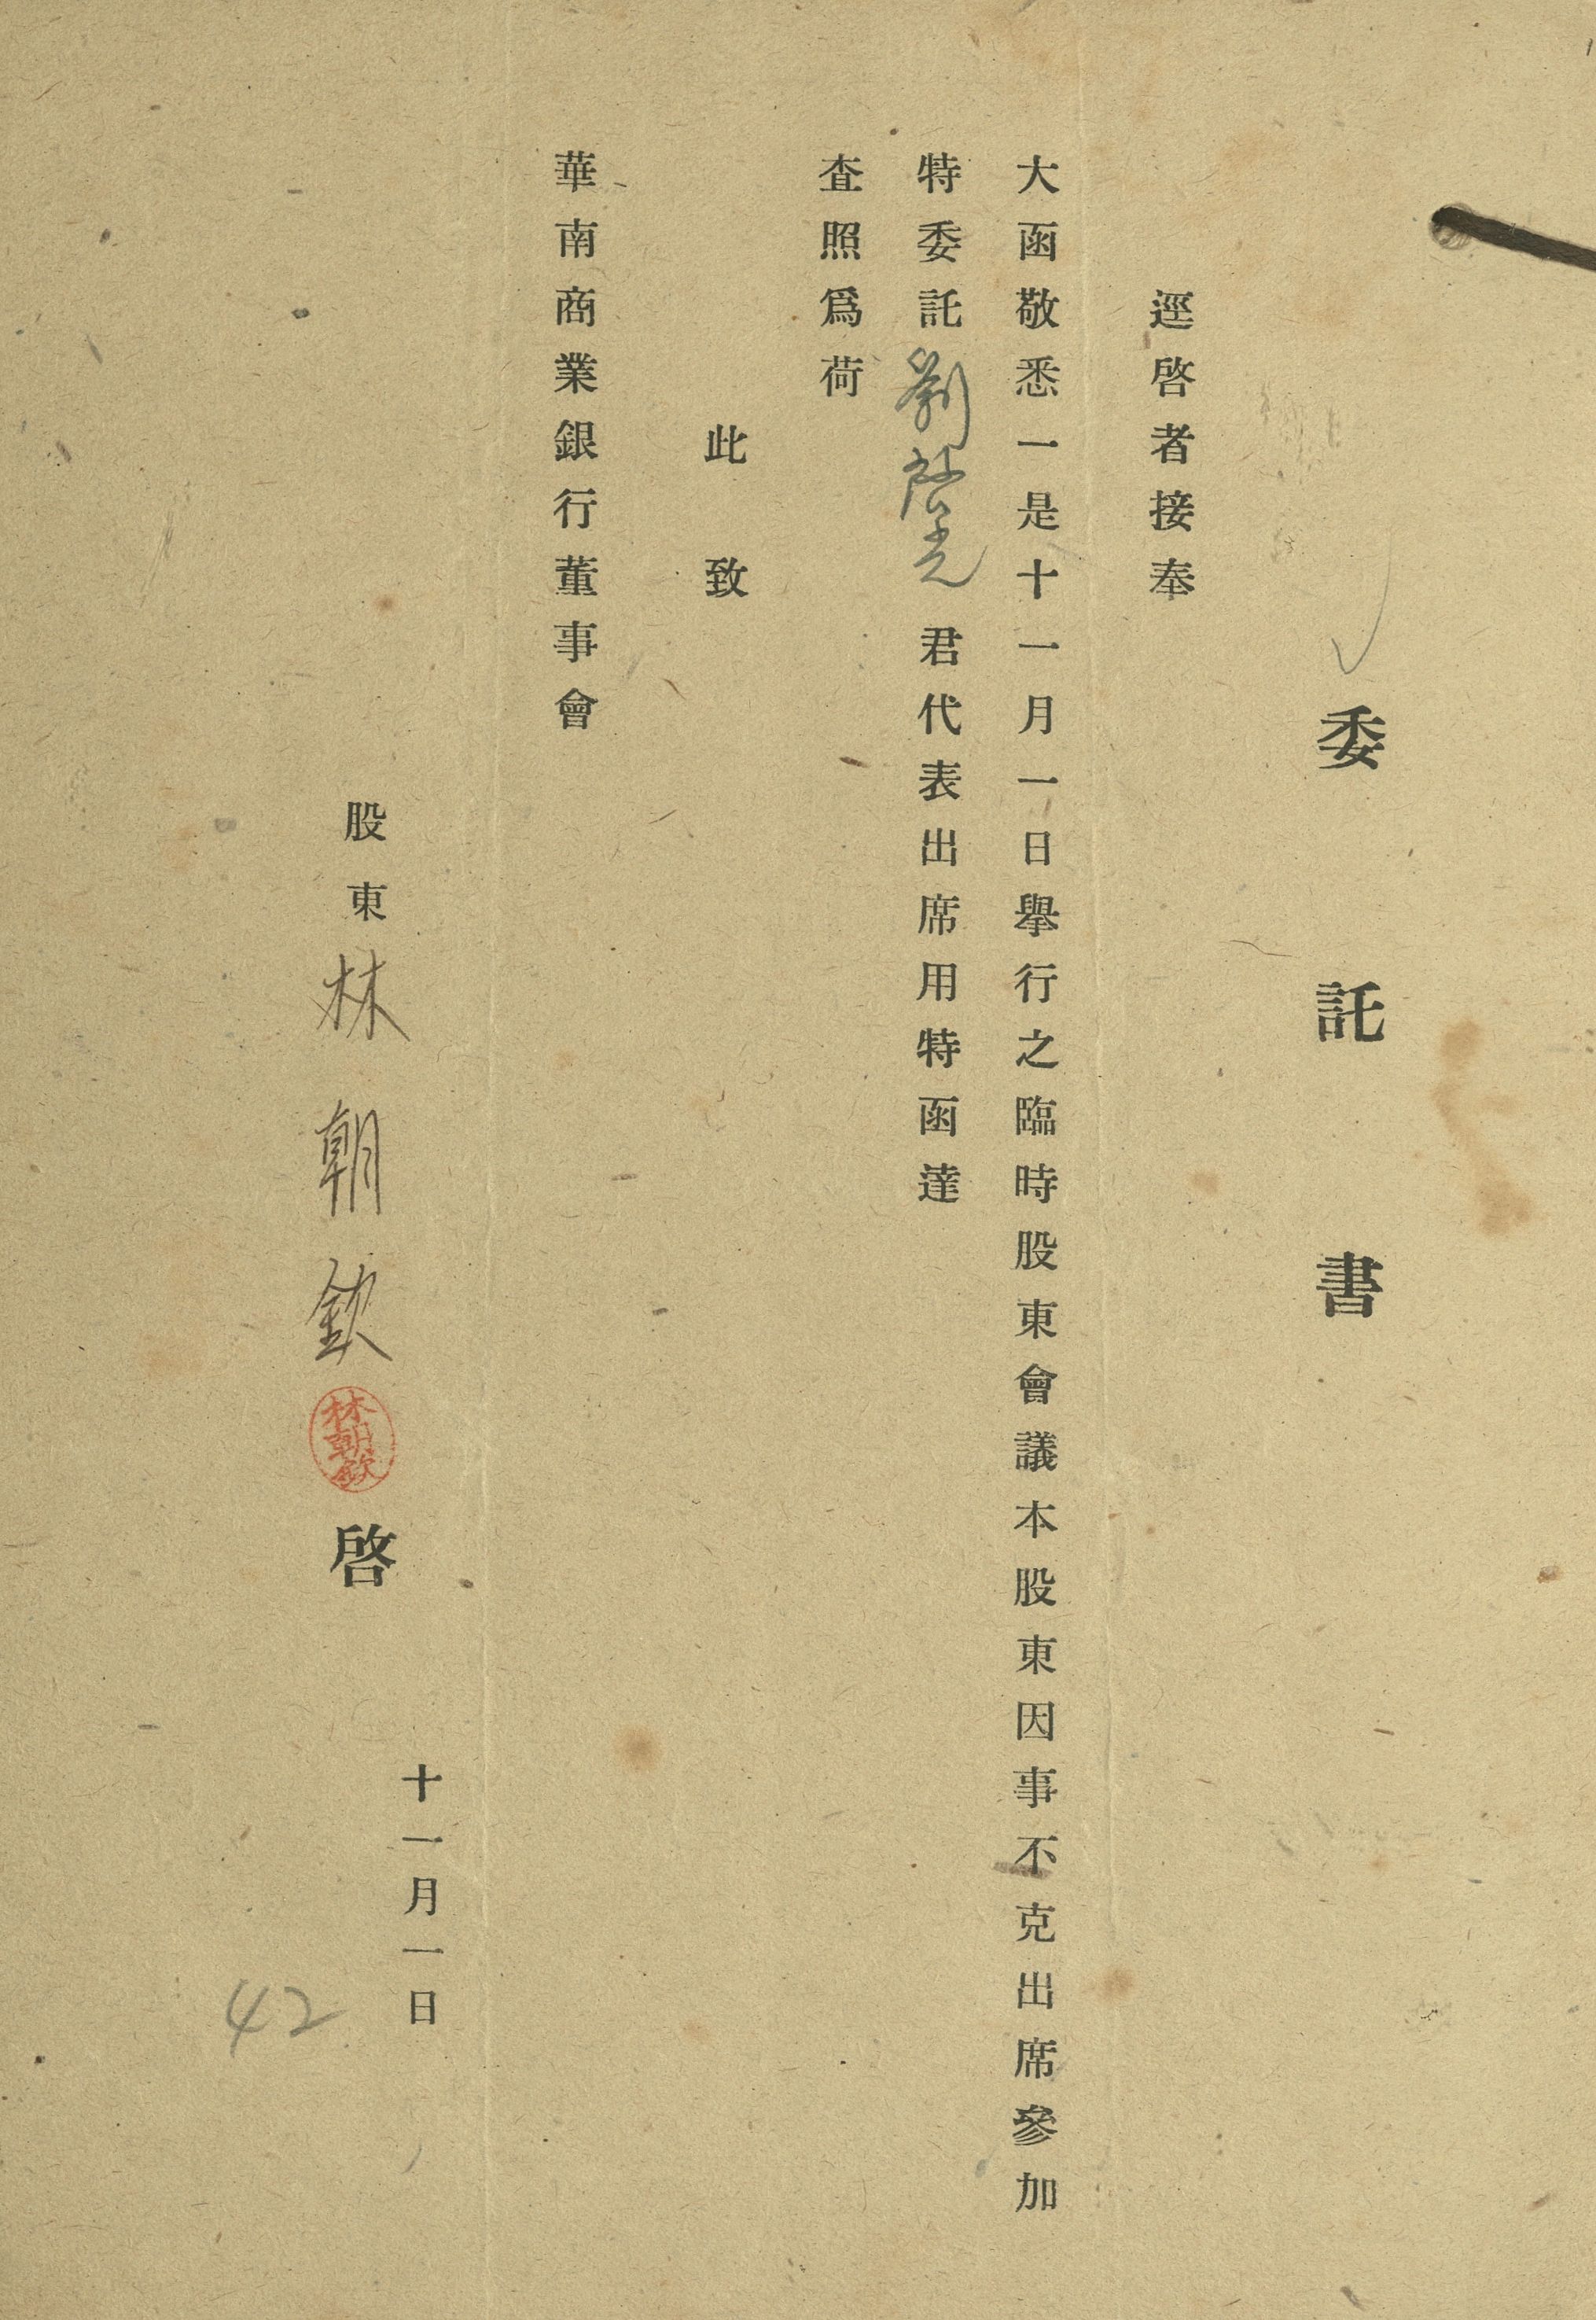 委託書
逕啓者接奉
大函敬悉一是十一月一日舉行之臨時股東會議本股東因事不克出席參加
特委託劉啓光君代表出席用特函達
查照爲荷
此致
華南商業銀行董事會
十一月一日
股東林朝欽啓
林朝欽
42